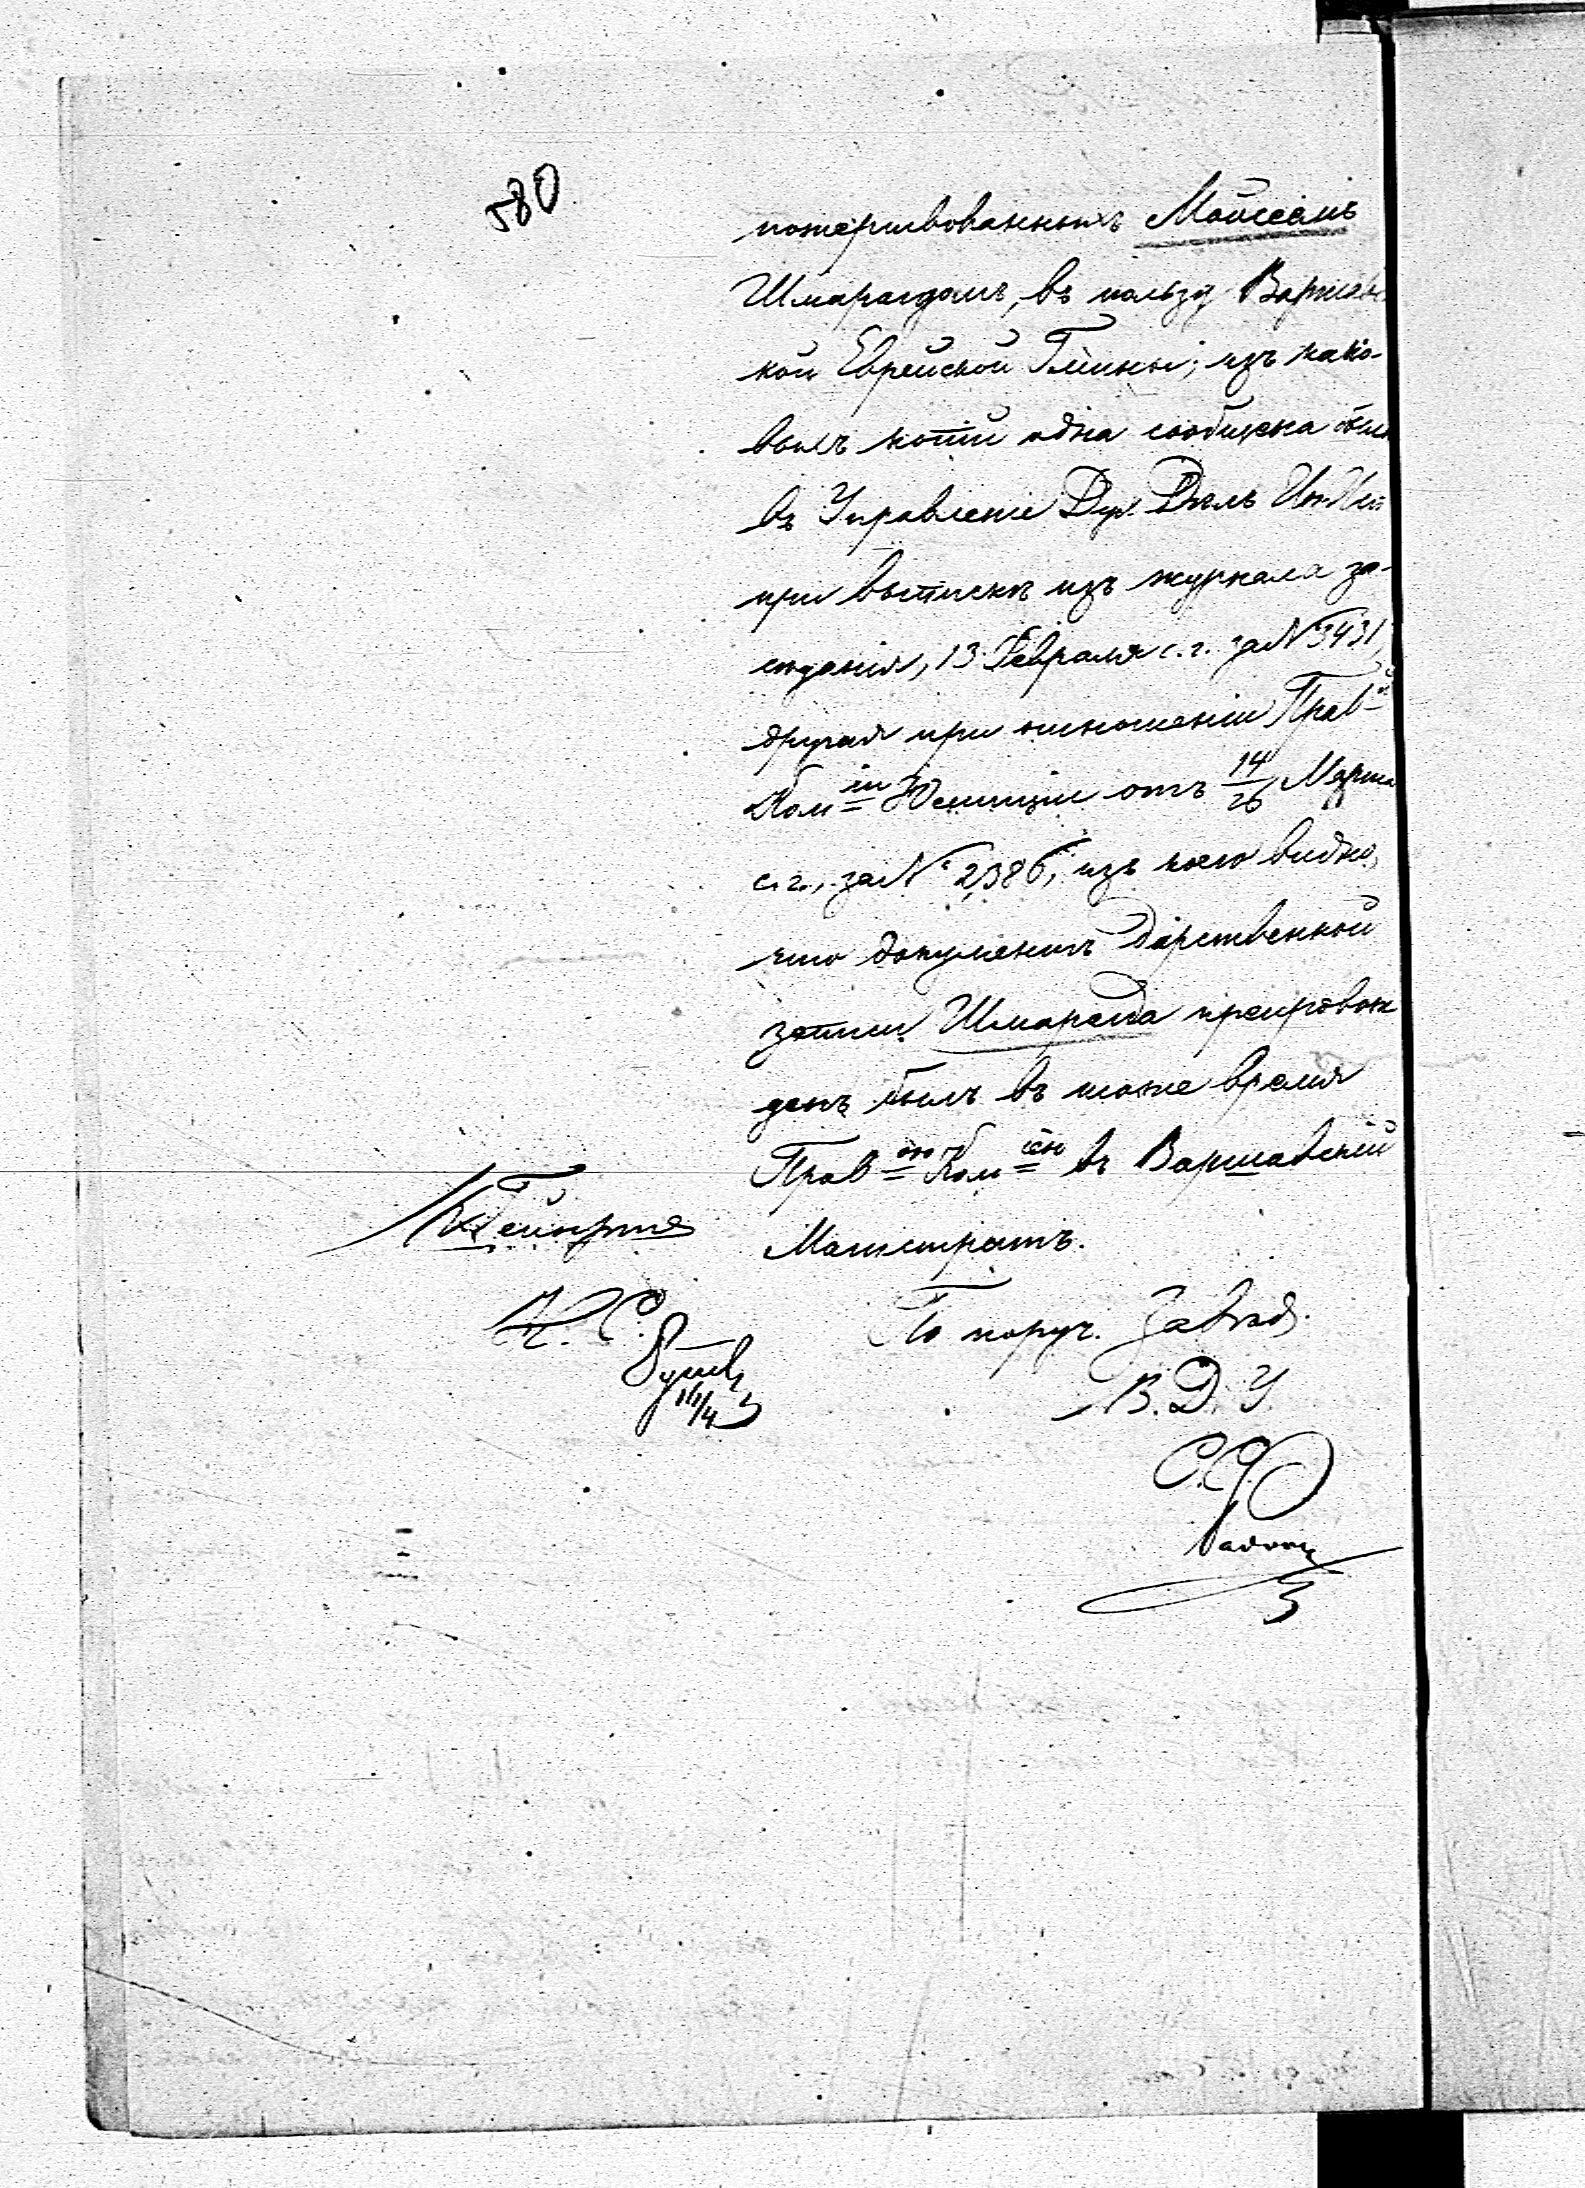 580
пожертвованныхъ Мойсеемъ
Шмарагдомъ, въ пользу Варшавс
кой Еврейской Гмины; изъ како-
выхъ копій одна сообщена была
въ Управленіе Дух. Дѣлъ Ин. Исп
при выпискѣ изъ журнала за-
сѣданія, 13 Февраля с. г. за № 3431,
другая при отношеніи Прав-й
Ком-іи Юстиціи отъ 14/26 Марта
с. г., за № 2386, изъ коего видно,
что документъ дарственной
записи Шмарагда препровож
денъ былъ въ тоже время
Прав-ою Ком-іею въ Варшавскій
Магистратъ.
По поруч. Завѣд.
В. Д. У.
С. С.
К. С.